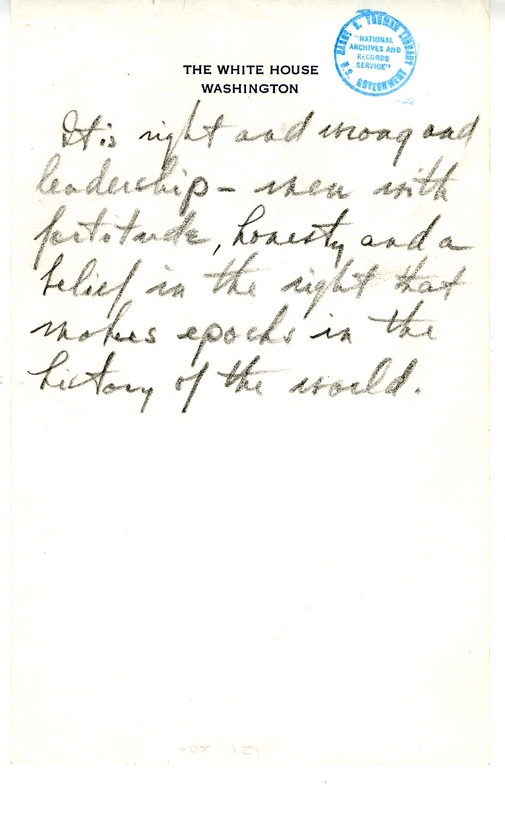 HARRY S. TRUMAN LIBRARY
"NATIONAL
ARCHIVES AND
RECORDS
SERVICE"
U.S. GOVERNMENT
THE WHITE HOUSE
WASHINGTON
It is right and wrong and
leadership - men with
fortitude, honesty and a
belief in the right that
makes epochs in the
history of the world.